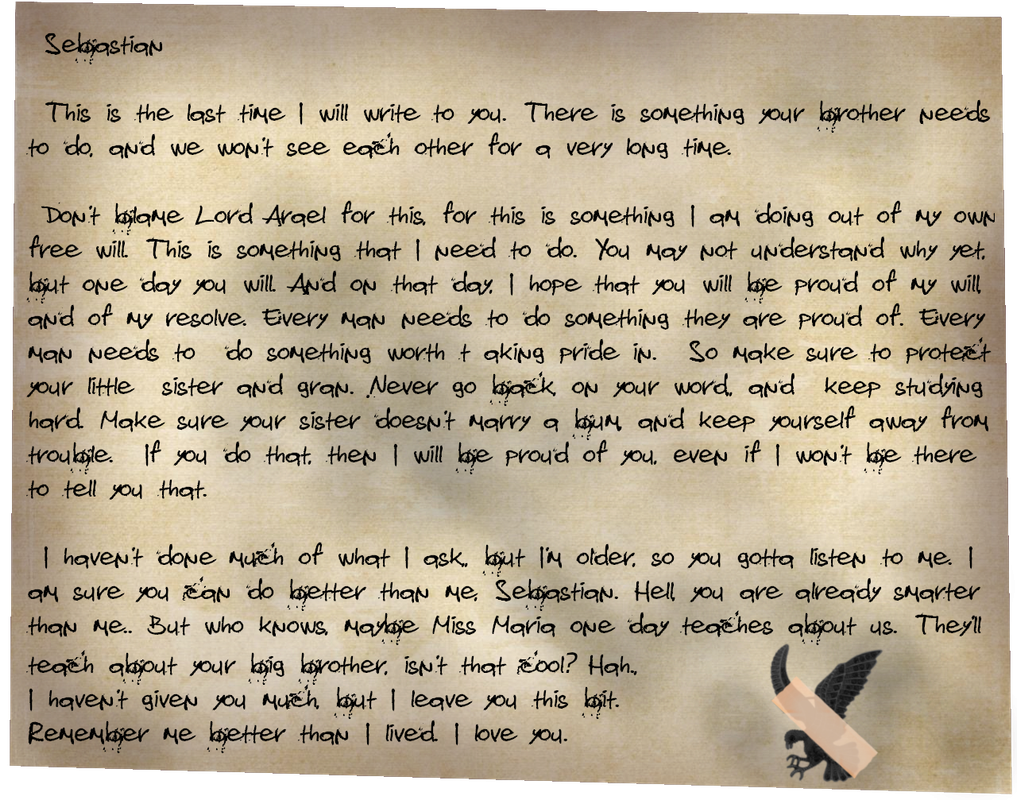 Sebastian
This is the last time I will write to you. There is something your brother needs
to do, and we won't see each other for a very long time.
Don't blame Lord Arael for this, for this is something I am doing out of my own
free will. This is something that I need to do. You may not understand why yet,
but one day you will. And on that day, I hope that you will be proud of my will,
and of my resolve. Every man needs to do something they are proud of. Every
man needs to do something worth t aking pride in. So make sure to protect
your little sister and gran. Never go back, on your word, and keep studying
hard. Make sure your sister doesn't marry a bum, and keep yourself away from
trouble. If you do that, then I will be proud of you, even if I won't be there
to tell you that.
I haven't done much of what I ask,. but I'm older, so you gotta listen to me. I
am sure you can do better than me, Sebastian. Hell, you are already smarter
than me.. But who knows, maybe Miss Maria one day teaches about us. They'll
teach about your big brother, isn't that cool? Hah.,
I haven't given you much, but I leave you this bit.
Remember me better than I lived. I love you.